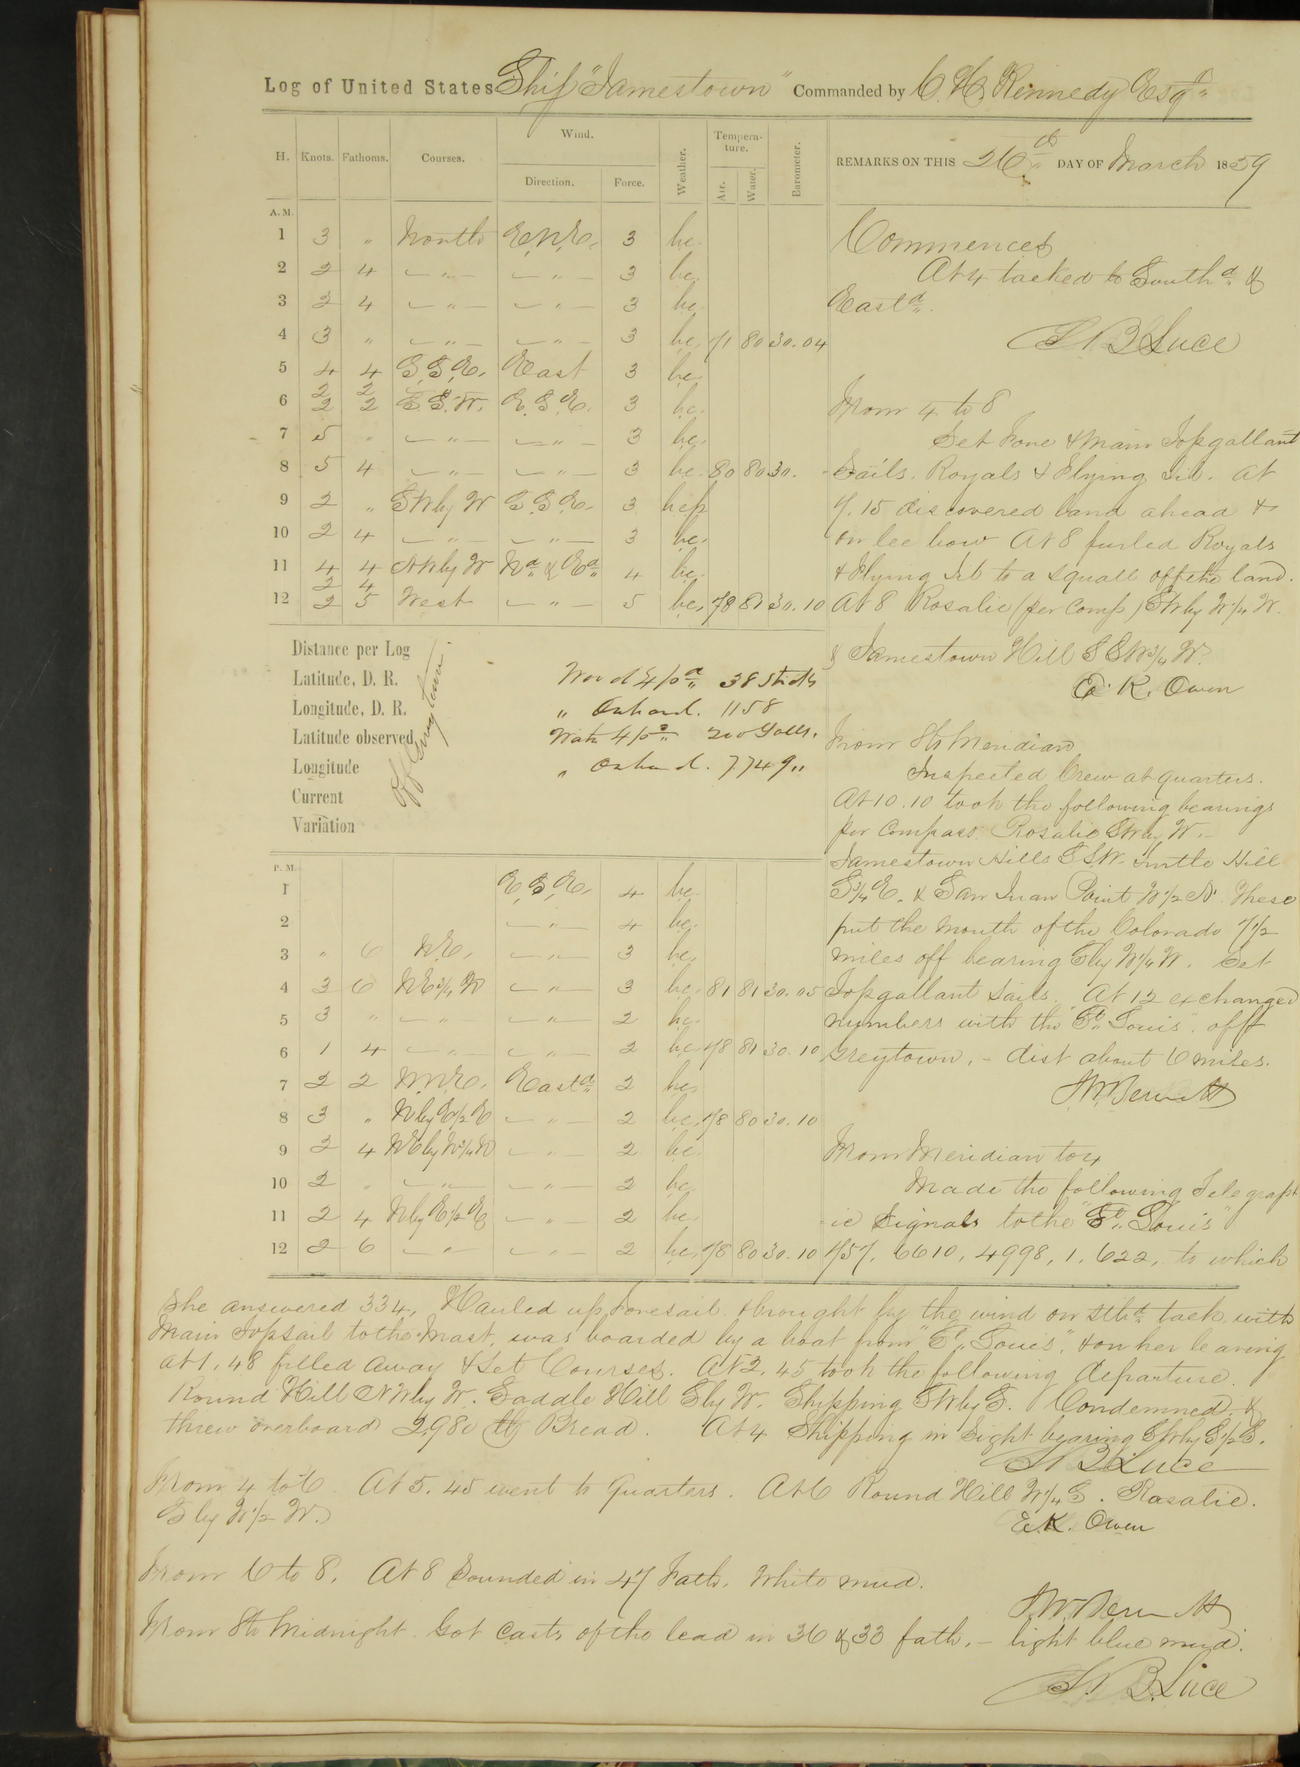 Log of United States Ship "Jamestown" Commanded by C. H. Kennedy Esqr.
H. Knots. Fathoms. Courses. Wind. Direction. Force. Weather. Temperature. Air. Water. Barometer.
REMARKS ON THIS 26th DAY OF March 1859
A.M.
1 3 " North E.N.E. 3 bc.
2 2 4 — " — — " — 3 bc.
3 2 4 — " — — " — 3 bc.
4 3 " — " — — " — 3 bc. 71 80 30.04
5 4 4 S.S.E. East 3 bc.
6 2 2 2 2 S.S.W. E.S.E. 3 bc.
7 5 " — " — — " — 3 bc.
8 5 4 — " — — " — 3 bc. 80 80 30.
9 2 " SW by W S.S.E. 3 bcp
10 2 4 — " — — " — 3 bc.
11 4 4 NW by W Nd. & Ed. 4 bc.
12 2 4 2 5 West — " — 5 bc. 78 81 30.10
Commences
At 4 tacked to Southd. &
Eastd.
S. B. Luce
From 4 to 8
Set Fore & Main Topgallant
Sails. Royals & Flying Jib. At
7.15 discovered land ahead &
on lee bow. At 8 furled Royals
& Flying Jib to a squall off the land.
At 8 Rosalie (per comp) SW by W 1/4 W.
& Jamestown Hill SSW 3/4 W.
E. K. Owen
Distance per Log
Latitude, D. R.
Longitude, D. R.
Latitude observed
Longitude
Current
Variation
off Greytown
Wood Expd. 38 Sticks
" Onhand. 1158
Water Expd. 200 Galls.
" Onhand. 7749"
From 8 to Meridian
Inspected Crew at quarters.
At 10.10 took the following bearings
per Compass. Rosalie SW by W. —
Jamestown Hills SSW. Turtle Hill
S 3/4 E. & San Juan Point W 1/2 N. These
put the mouth of the Colorado 7 1/2
miles off bearing S by W 1/4 W. Set
Topgallant Sails. At 12 exchanged
numbers with the "St. Louis". off
Greytown, — dist about 6 miles.
P.M.
1 E.S.E. 4 bc.
2 — " — 4 bc.
3 " 6 N.E. — " — 3 bc.
4 3 6 NE 3/4 N — " — 3 bc. 81 81 30.05
5 3 " — " — — " — 2 bc.
6 1 4 — " — — " — 2 bc. 78 81 30.10
7 2 2 N.N.E. Eastd. 2 bc.
8 3 " N by E 1/2 E — " — 2 bc. 78 80 30.10
9 2 4 NE by N 3/4 N — " — 2 bc.
10 2 " — " — — " — 2 bc.
11 2 4 N by E 1/2 E — " — 2 bc.
12 2 6 — " — — " — 2 bc. 78 80 30.10
From Meridian to 4
Made the following Telegraph
-ic Signals to the "St. Louis"
757, 6610, 4998, 1, 622, to which
she answered 334, Hauled up Foresail & brought by the wind on tack with
Main Topsail to the Mast, was boarded by a boat from "St. Louis", & on her leaving
at 1.48 filled away & Set Courses. At 2.45 took the following departure.
Round Hill NW by W. Saddle Hill S by W. Shipping SW by S. Condemned, &
threw overboard 2,980 lbs Bread. At 4 Shipping in Sight bearing SW by S 1/2 S.
S. B. Luce
From 4 to 6. At 5.45 went to Quarters. At 6 Round Hill W 1/4 S. Rosalie.
S by W 1/2 W.
E. K. Owen
From 6 to 8. At 8 Sounded in 47 Fath. White mud.
From 8 to Midnight. Got Casts of the lead in 36 & 33 fath. — light blue mud.
S. B. Luce